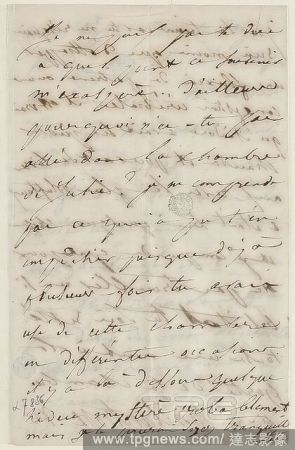 Je ne puis pas te dire
à quel point ce
m'exaspère. D'ailleurs
pourquoi n'es-tu pas
allé dans la chambre
de Julie? je ne comprends
pas ce qui a pu t'en
empêcher puisque déjà
plusieurs fois tu avais
usé de cette chambre
en différentes occasions
il y a là dessous quelque
mystère probablement
mais je le
7836
TPG
www.tpgnews.com / 達志影像